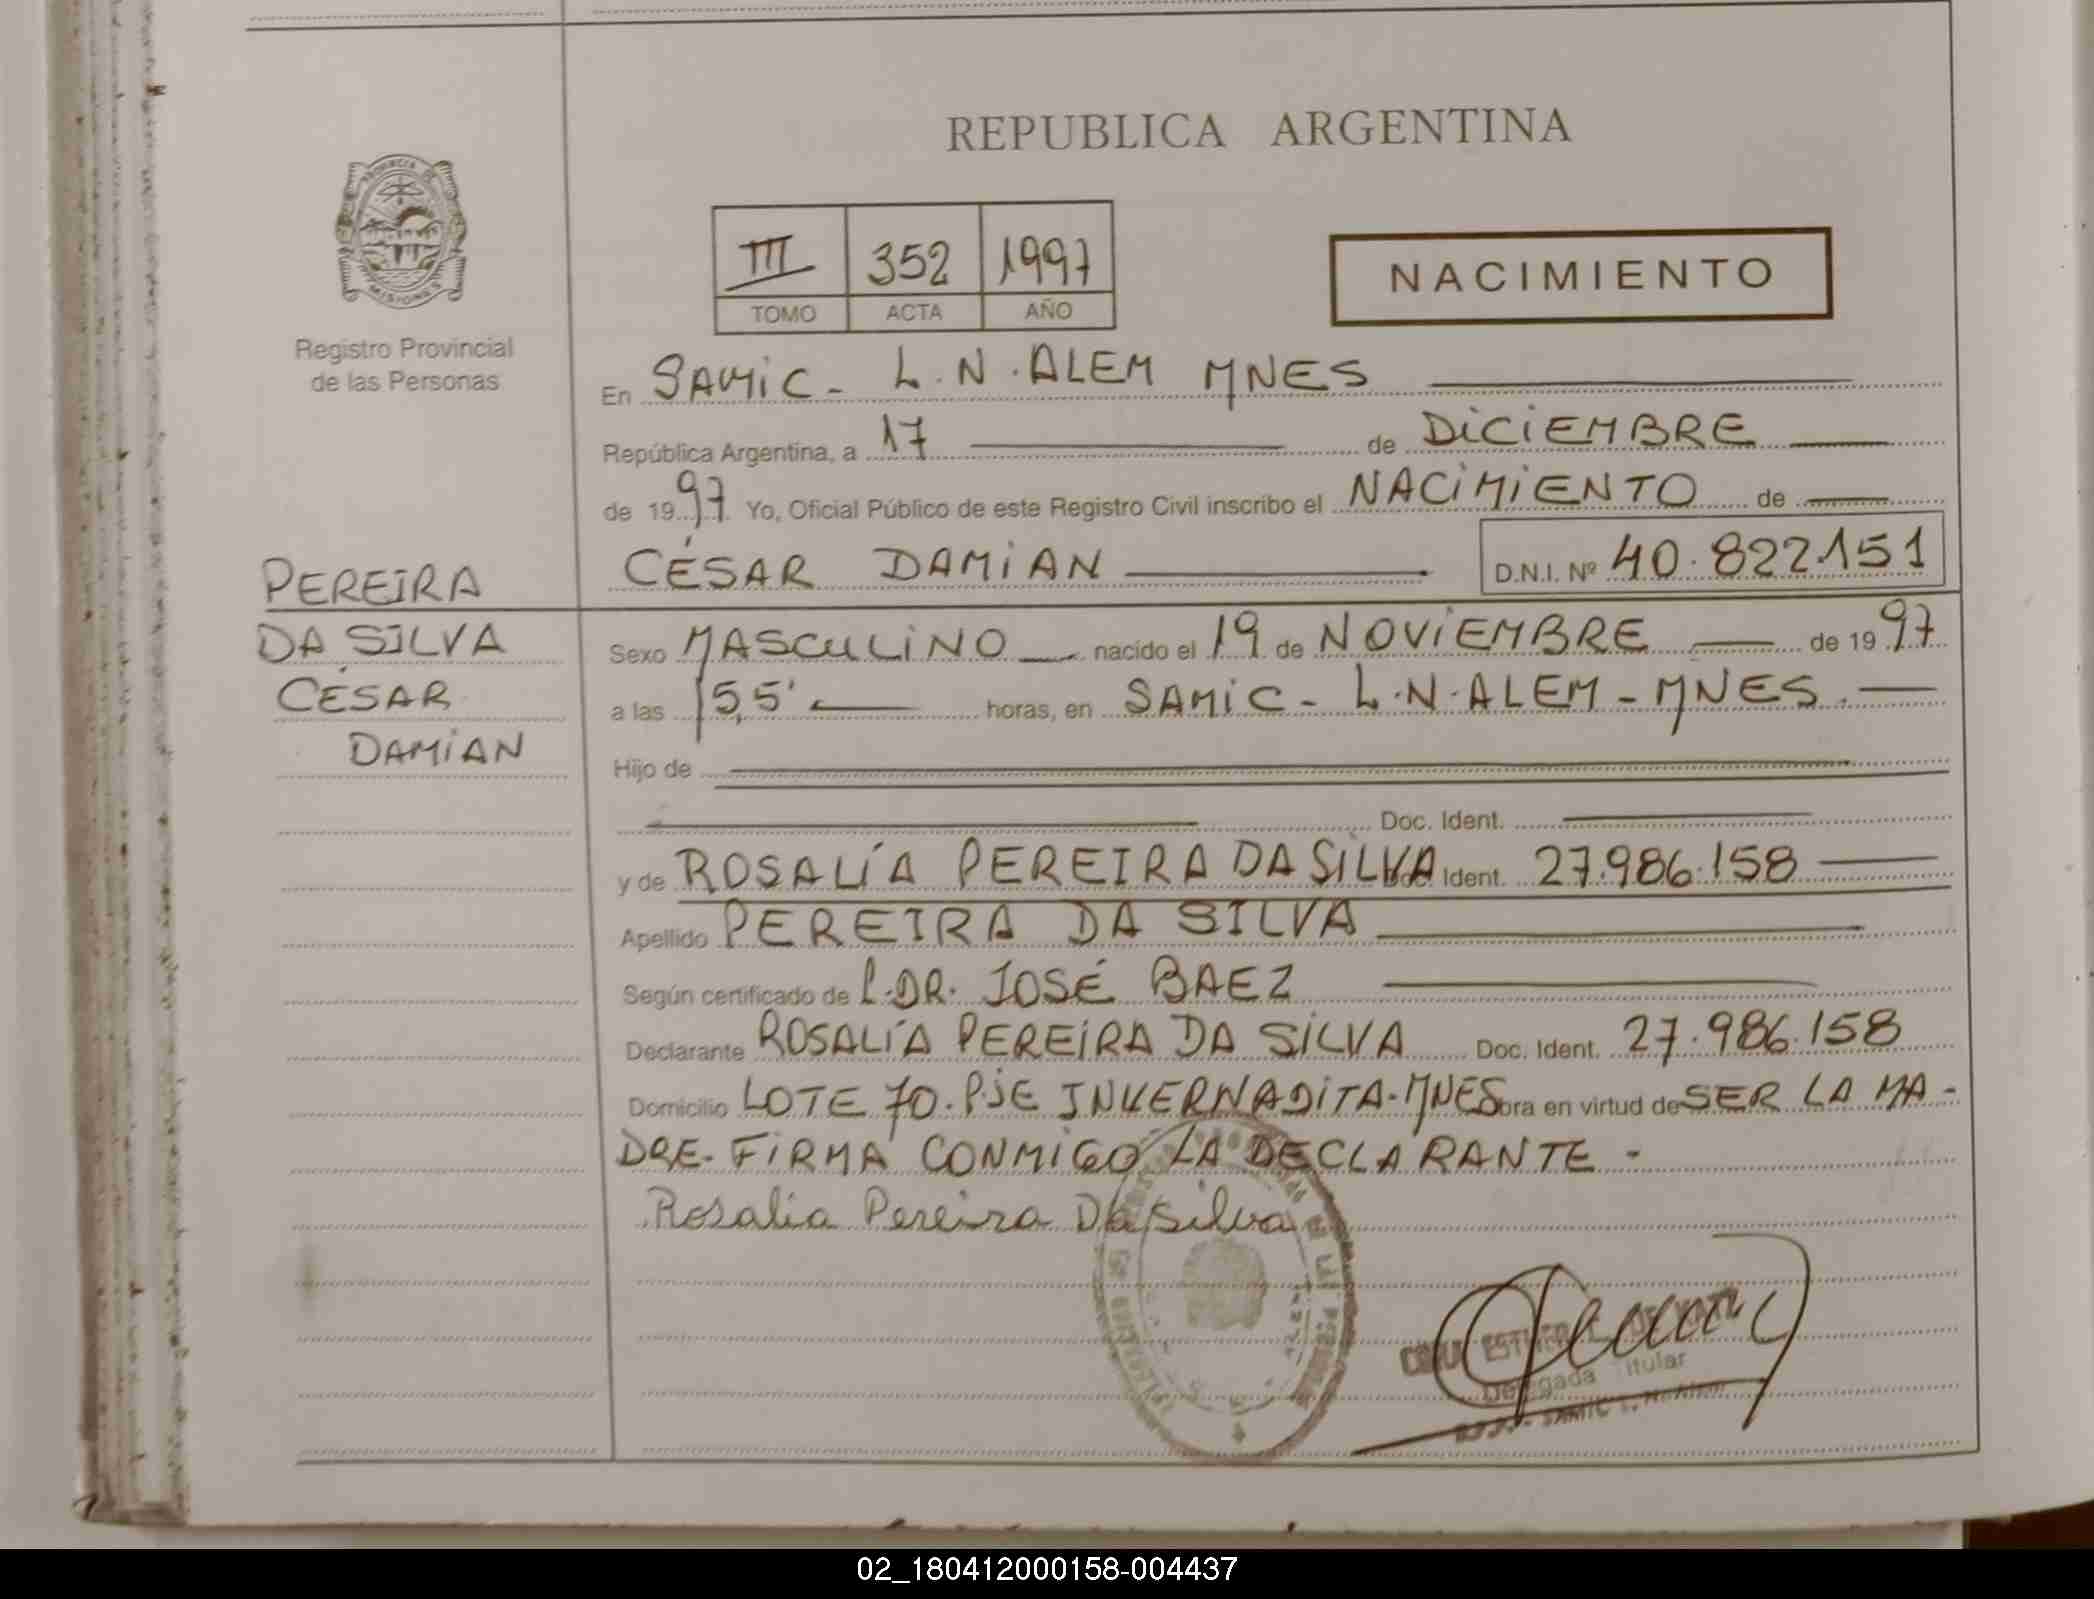 REPUBLICA ARGENTINA
PROVINCIA DE
MISIONES
Registro Provincial
de las Personas
III 352 1997
TOMO ACTA AÑO
NACIMIENTO
En SAMIC - L.N. ALEM MNES
República Argentina, a 17 de DICIEMBRE
de 1997 Yo, Oficial Público de este Registro Civil inscribo el NACIMIENTO de
CÉSAR DAMIAN D.N.I. Nº 40.822.151
PEREIRA
DA SILVA
CÉSAR
DAMIAN
Sexo MASCULINO nacido el 19 de NOVIEMBRE de 1997
a las 15,5' horas, en SAMIC - L.N. ALEM - MNES.
Hijo de
Doc. Ident.
y de ROSALÍA PEREIRA DA SILVA Doc. Ident. 27.986.158
Apellido PEREIRA DA SILVA
Según certificado de P. DR. JOSÉ BAEZ
Declarante ROSALÍA PEREIRA DA SILVA Doc. Ident. 27.986.158
Domicilio LOTE 70. PJE INVERNADITA - MNES obra en virtud de SER LA MA-
DRE. FIRMA CONMIGO LA DECLARANTE -
Rosalia Pereira Da silva
Delegada Titular
SAMIC L. N. Alem
02_180412000158-004437